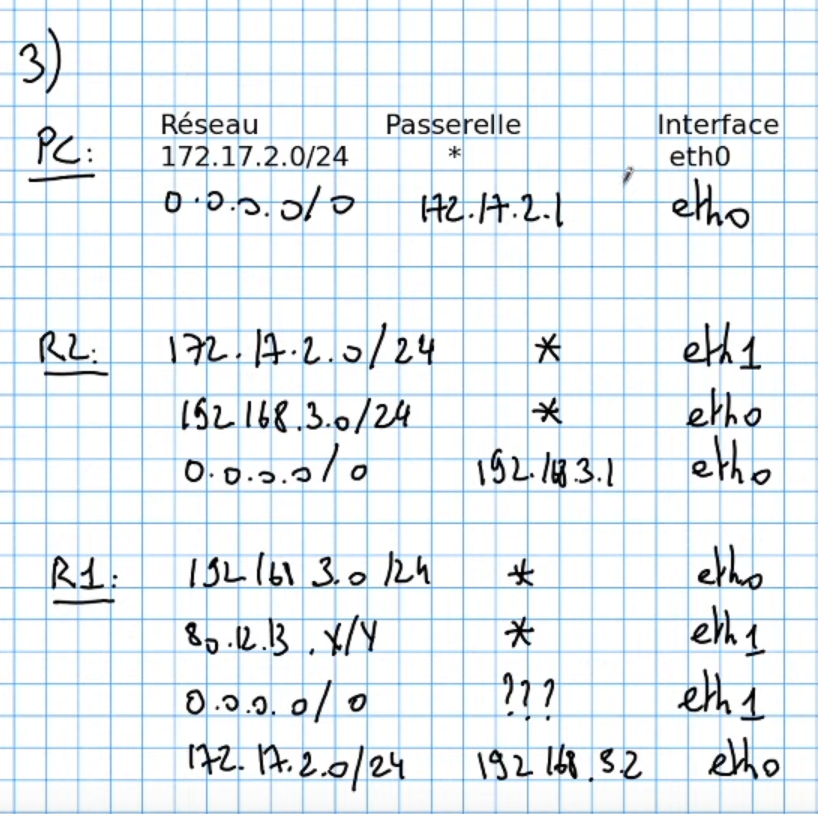 3)
Réseau Passerelle Interface
PC: 172.17.2.0/24 * eth0
0.0.0.0/0 172.17.2.1 eth0
R2: 172.17.2.0/24 * eth1
192 168.3.0/24 * eth0
0.0.0.0/0 192.168.3.1 eth0
R1: 192 168 3.0 /24 * eth0
80.12.13 .X/Y * eth1
0.0.0.0/0 ??? eth1
172.17.2.0/24 192 168.3.2 eth0